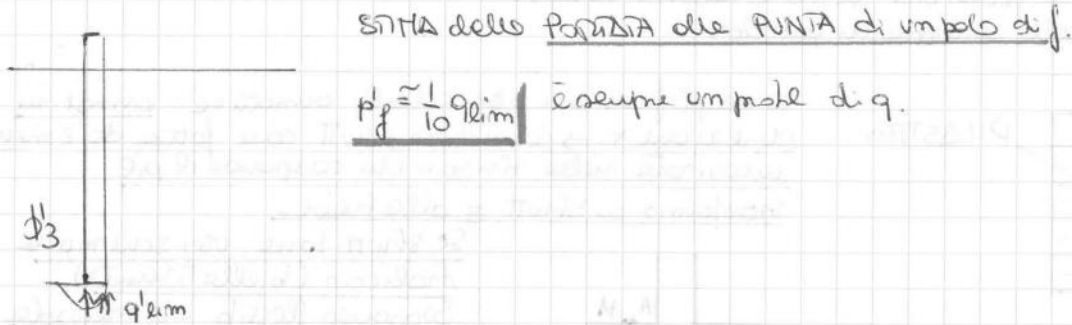 STIMA della PORTATA alla PUNTA di un palo di f.
p'f ≅ 1/10 qlim è sempre un probl. di q.
q'lim